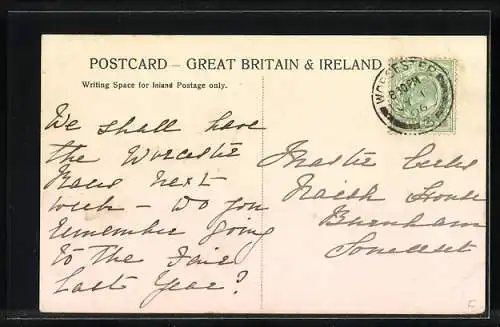 POSTCARD – GREAT BRITAIN & IRELAND
Writing Space for Inland Postage only.
WORCESTER
8.30PM
We shall have
the Worcester
Races next
week – Do you
remember going
to the Fair
last Year?
Master
House
Burnham
Somerset